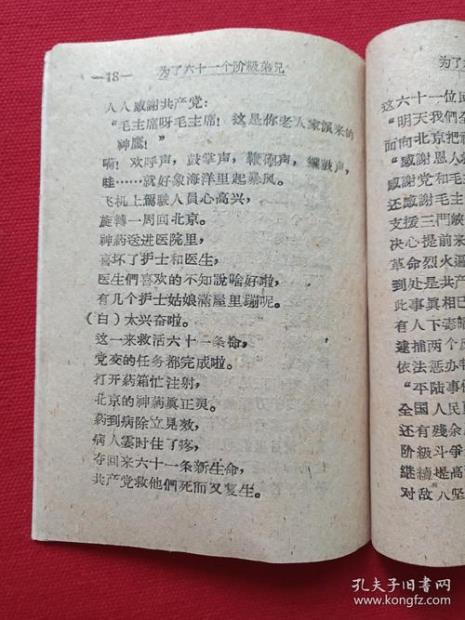 —18— 为了六十一个阶級弟兄
人人感謝共产党：
“毛主席呀毛主席！这是你老人家派来的
神鷹！”
嗬！欢呼声，鼓掌声，鞭炮声，鑼鼓声，
哇……就好象海洋里起暴风。
飞机上駕駛人員心高兴，
旋轉一周回北京。
神葯送进医院里，
喜坏了护士和医生，
医生們喜欢的不知說啥好啦，
有几个护士姑娘滿屋里蹦呢。
（白）太兴奋啦。
这一来救活六十一条命，
党交的任务都完成啦。
打开葯箱忙注射，
北京的神葯眞正灵。
葯到病除立見效，
病人霎时住了疼，
夺回来六十一条新生命，
共产党救他們死而又复生。
为了
这六十一位
“明天我們
面向北京把
“感謝恩人
感謝党和毛
还感謝毛主
支援三門峽
决心提前来
革命烈火遍
到处是共产
此事眞相巳
有人下毒
逮捕两个
依法惩办
“平陆事件
全国人民
还有残余
阶級斗爭
継續提高
对敌人坚
孔夫子旧书网
kongfz.com